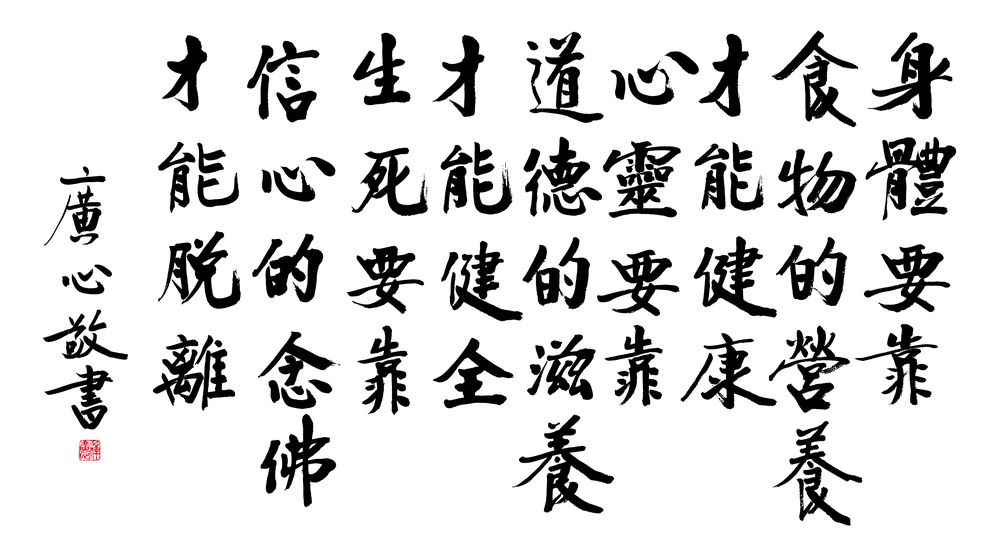 身體要靠
食物的營養
才能健康
心靈要靠
道德的滋養
才能健全
生死要靠
信心的念佛
才能脫離
廣心敬書